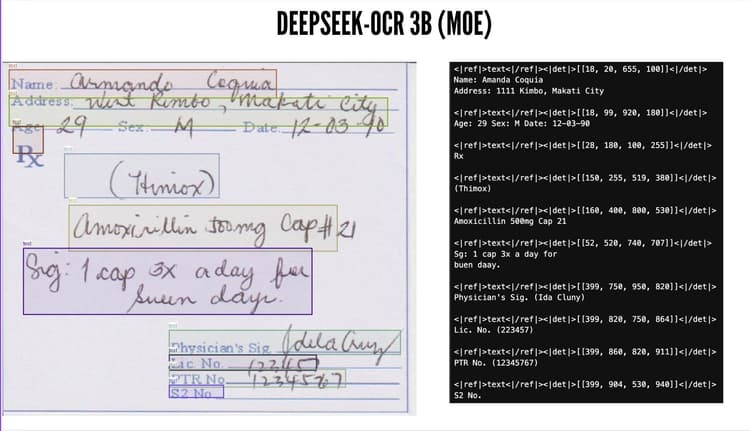 DEEPSEEK-OCR 3B (MOE)
Name: Armando Coquia
Address: West Rembo, Makati City
Age: 29 Sex: M Date: 12-03-90
Rx
(Himox)
Amoxicillin 500mg Cap #21
Sig: 1 cap 3x a day for
seven days.
Physician's Sig. Jdela Cruz
Lic No. 12345
PTR No. 1234567
S2 No.
<|ref|>text<|/ref|><|det|>[[18, 20, 655, 100]]<|/det|>
Name: Amanda Coquia
Address: 1111 Kimbo, Makati City
<|ref|>text<|/ref|><|det|>[[18, 99, 920, 180]]<|/det|>
Age: 29 Sex: M Date: 12-03-90
<|ref|>text<|/ref|><|det|>[[28, 180, 100, 255]]<|/det|>
Rx
<|ref|>text<|/ref|><|det|>[[150, 255, 519, 380]]<|/det|>
(Thimox)
<|ref|>text<|/ref|><|det|>[[160, 400, 800, 530]]<|/det|>
Amoxicillin 500mg Cap 21
<|ref|>text<|/ref|><|det|>[[52, 520, 740, 707]]<|/det|>
Sg: 1 cap 3x a day for
buen daay.
<|ref|>text<|/ref|><|det|>[[399, 750, 950, 820]]<|/det|>
Physician's Sig. (Ida Cluny)
<|ref|>text<|/ref|><|det|>[[399, 820, 750, 864]]<|/det|>
Lic. No. (223457)
<|ref|>text<|/ref|><|det|>[[399, 860, 820, 911]]<|/det|>
PTR No. (12345767)
<|ref|>text<|/ref|><|det|>[[399, 904, 530, 940]]<|/det|>
S2 No.